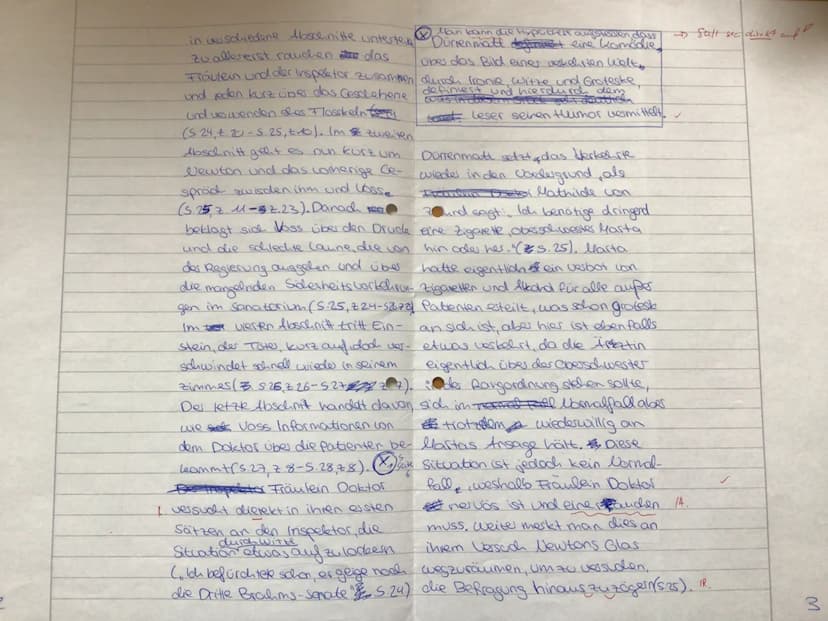 in verschiedene Abschnitte unterteilt
zu allererst rauchen das
Fräulein und der Inspektor zusammen
und reden kurz über das Geschehene
und verwenden dies Floskeln
(S.24, Z. 20 – S.25, Z.10). Im zweiten
Abschnitt geht es nun kurz um
Newton und das vorherige Ge-
spräch zwischen ihm und Voss.
(S. 25, Z 11 – Z.23). Danach
beklagt sich Voss über den Druck
und die schlechte Laune, die von
der Regierung ausgehen und über
die mangelnden Sicherheitsvorkehrun-
gen im Sanatorium (S.25, Z24
Im vierten Abschnitt tritt Ein-
stein, der Täter, kurz auf, doch ver-
schwindet schnell wieder in seinem
Zimmer (S26, Z26 – S27
Der letzte Abschnitt handelt davon,
wie Voss Informationen von
dem Doktor über die Patienten be-
kommt (S.27, Z8 – S.28, Z8). X
Fräulein Doktor
versucht direkt in ihren ersten
Sätzen an den Inspektor, die
durch Witze
Situation etwas aufzulockern
(„Ich befürchtete schon, er geige noch
die Dritte Brahms-Sonate" S.24)
X Man kann die Hypothese aufstellen dass
Dürrenmatt eine Komödie,
über das Bild einer verkehrten Welt,
durch Ironie, Witze und Groteske,
definiert und hierdurch dem
Leser seinen Humor vermittelt.
Dürrenmatt setzt das Verkehrte
wieder in den Vordergrund, als
Mathilde von
Zahnd sagt: „Ich benötige dringend
eine Zigarette, Oberschwester Marta
hin oder her." (S.25). Marta
hatte eigentlich ein Verbot von
Zigaretten und Alkohol für alle außer
Patienten erteilt, was schon grotesk
an sich ist, aber hier ist ebenfalls
etwas verkehrt, da die Ärztin
eigentlich über der Oberschwester
in der Rangordnung stehen sollte,
sich im Normalfall aber
trotzdem wiederwillig an
Martas Ansage hält. Diese
Situation ist jedoch kein Normal-
fall, weshalb Fräulein Doktor
nervös ist und eine rauchen
muss. Weiter merkt man dies an
ihrem Versuch Newtons Glas
wegzuräumen, um zu versuchen,
die Befragung hinauszuzögern (S.25).
R.
3